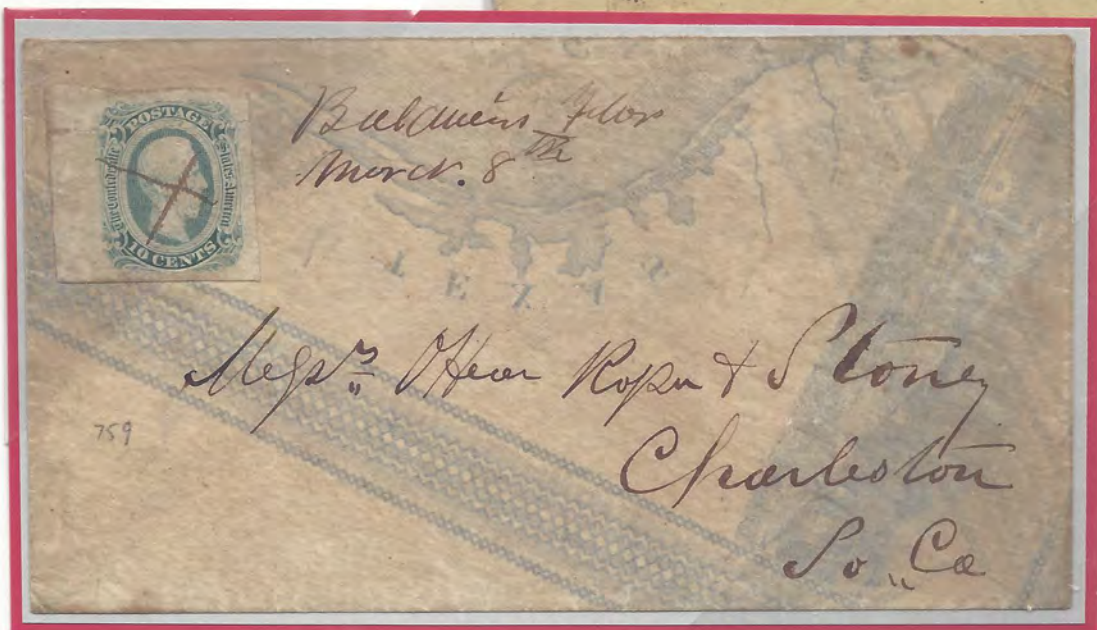 POSTAGE
The Confederate States America
10 CENTS
Baldwin's Flor
March. 8th
TEXAS
Messrs OHear Roper & Stoney
Charleston
So,, Ca
759